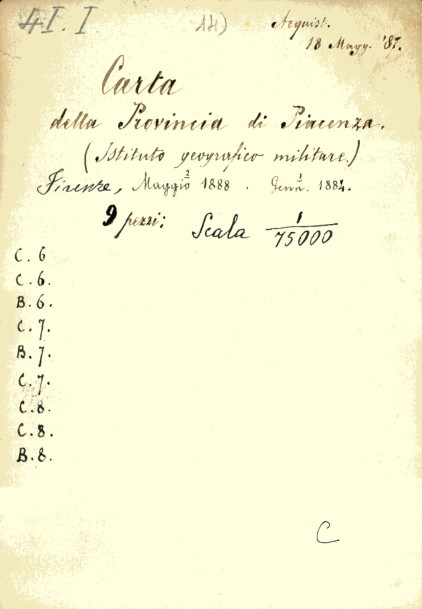 4I. I
14)
Acquist.
18 Magg. '87.
Carta
della Provincia di Piacenza.
(Istituto geografico militare.)
Firenze, Maggio 1888. Genn. 1884.
9 pezzi: Scala 1/75000
C. 6
C. 6.
B. 6.
C. 7.
B. 7.
C. 7.
C. 8.
C. 8.
B. 8.
C